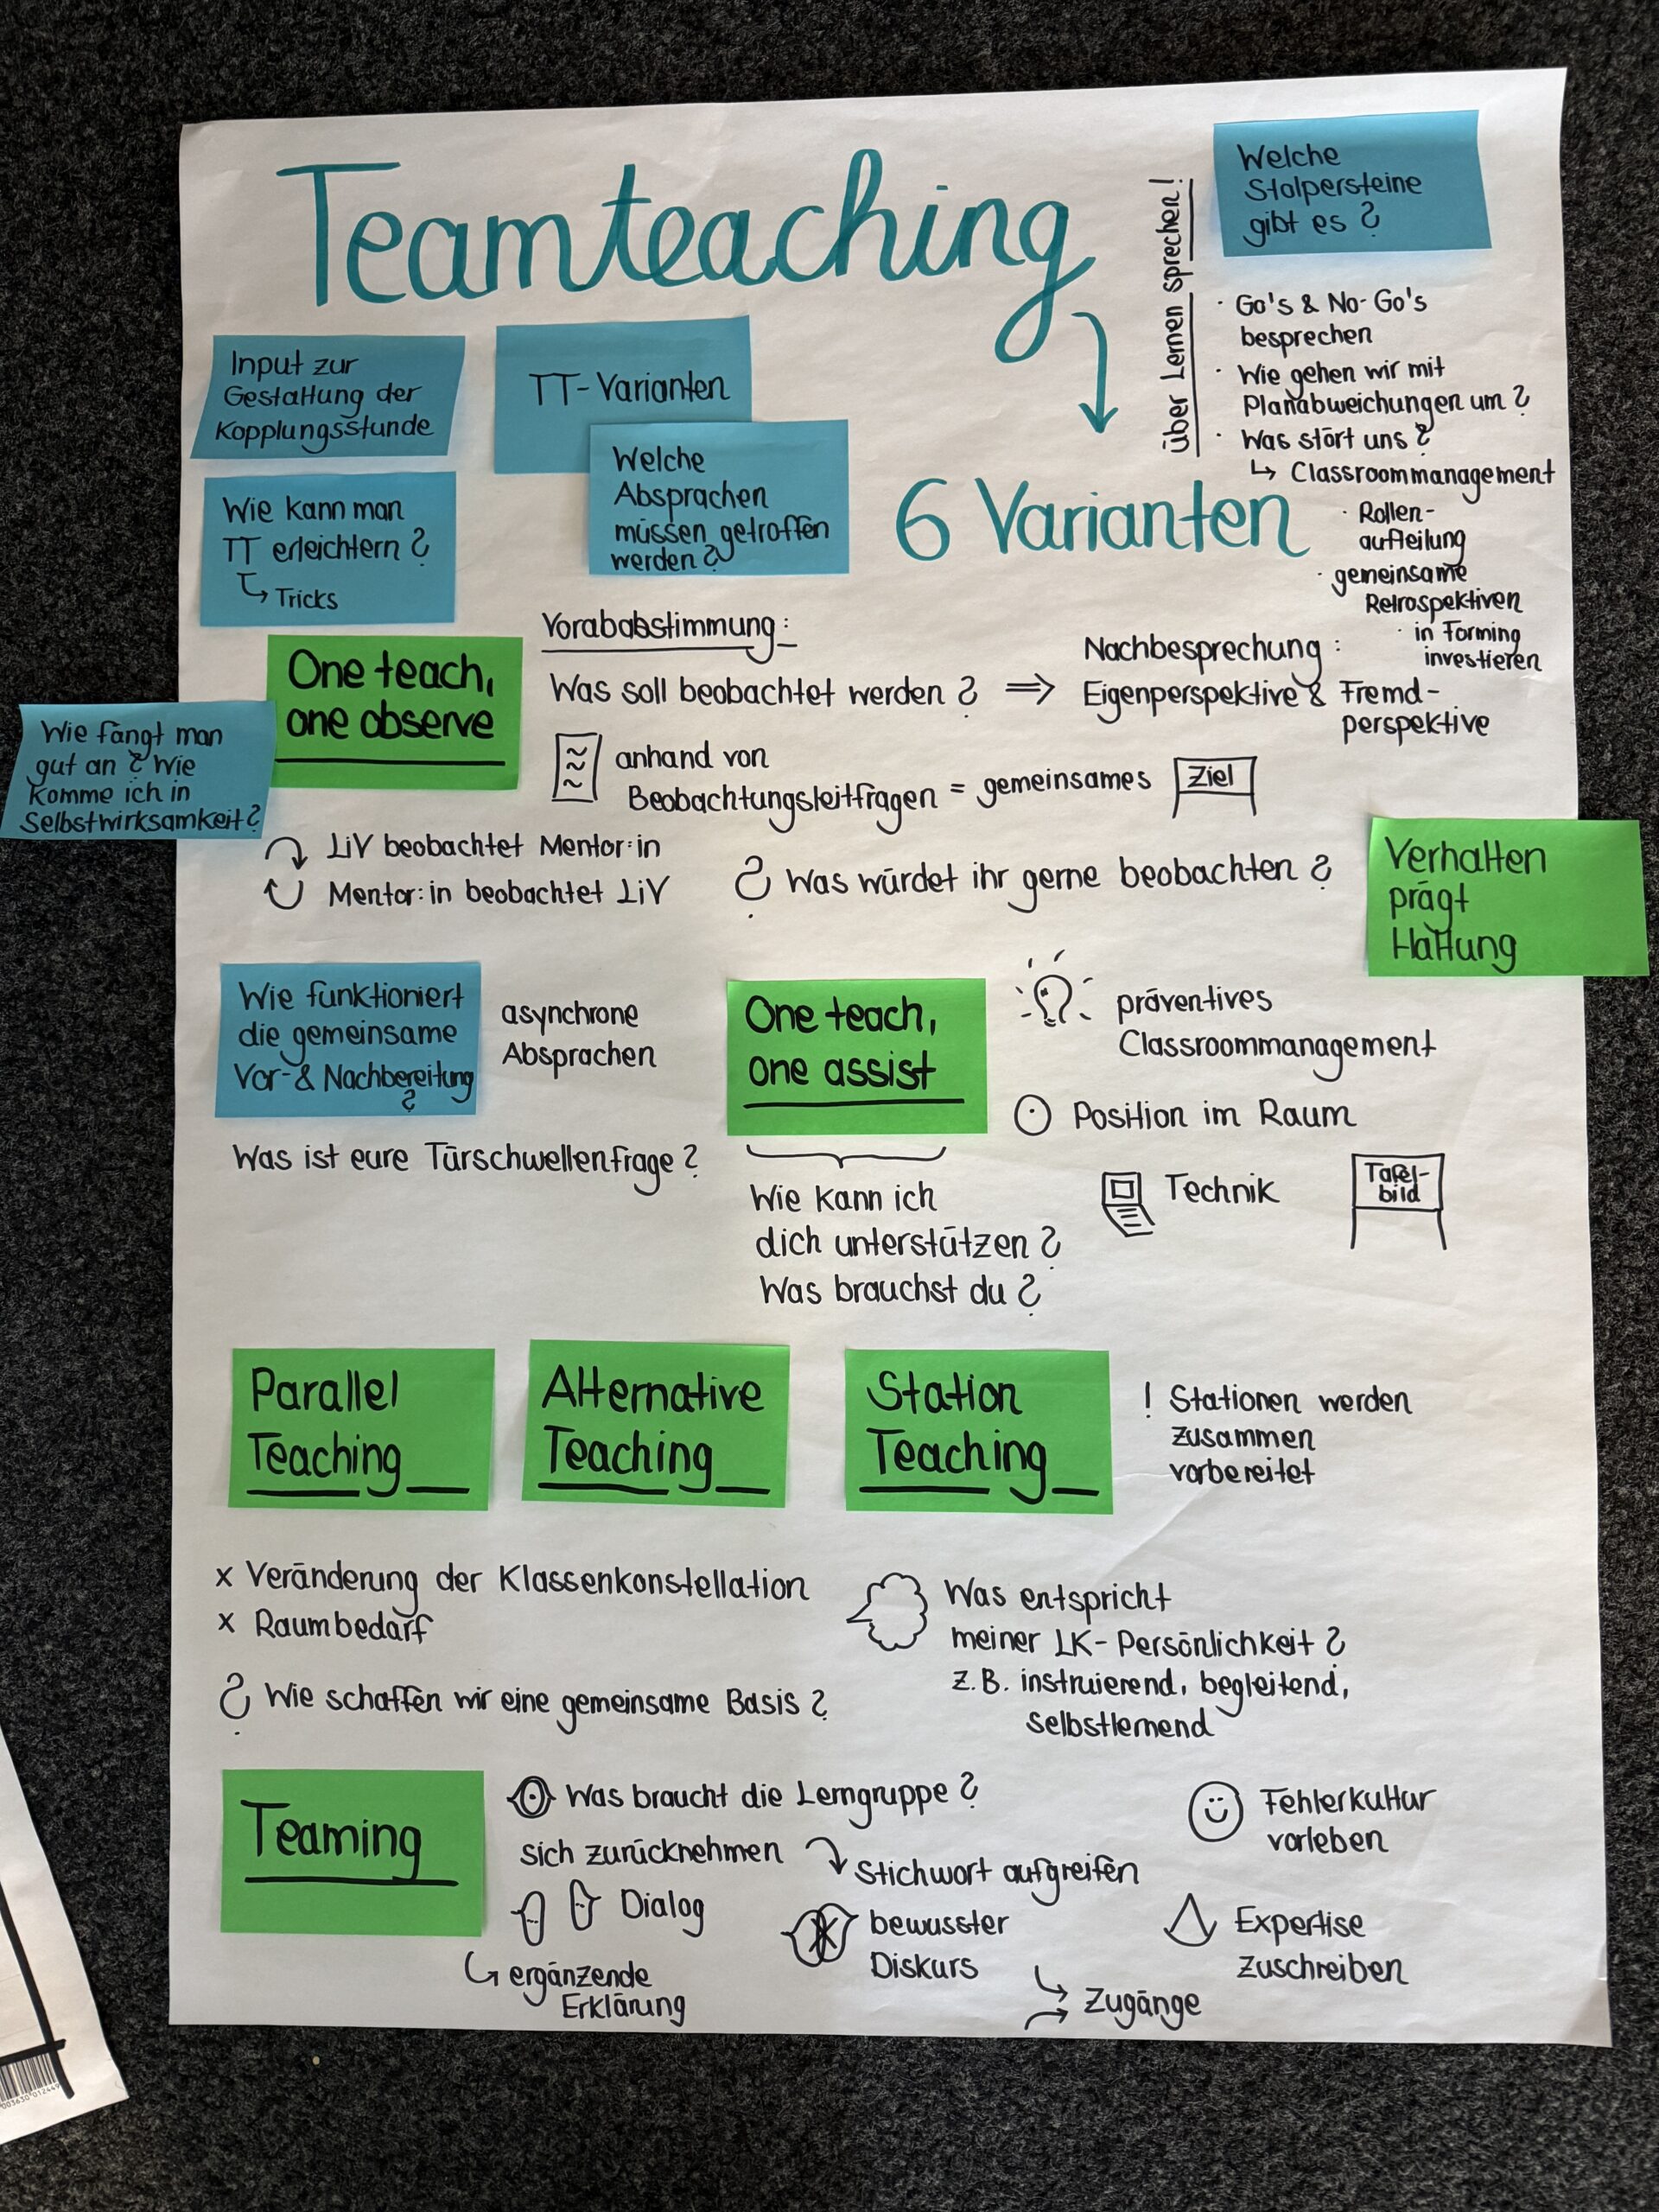 Teamteaching
über Lernen sprechen!
Welche
Stolpersteine
gibt es?
· Go's & No-Go's
besprechen
· Wie gehen wir mit
Planabweichungen um?
· Was stört uns?
↳ Classroommanagement
· Rollen-
aufteilung
· gemeinsame
Retrospektiven
· in Forming
investieren
Input zur
Gestaltung der
Kopplungsstunde
TT-Varianten
Welche
Absprachen
müssen getroffen
werden?
Wie kann man
TT erleichtern?
↳ Tricks
6 Varianten
One teach,
one observe
Vorababstimmung:
Was soll beobachtet werden? ⇒
Nachbesprechung:
Eigenperspektive & Fremd-
perspektive
anhand von
Beobachtungsleitfragen = gemeinsames
Ziel
Wie fängt man
gut an? Wie
komme ich in
Selbstwirksamkeit?
LiV beobachtet Mentor:in
Mentor:in beobachtet LiV
? Was würdet ihr gerne beobachten?
Verhalten
prägt
Haltung
Wie funktioniert
die gemeinsame
Vor- & Nachbereitung
?
asynchrone
Absprachen
Was ist eure Türschwellenfrage?
One teach,
one assist
präventives
Classroommanagement
Position im Raum
Technik
Tafel-
bild
Wie kann ich
dich unterstützen?
Was brauchst du?
Parallel
Teaching
Alternative
Teaching
Station
Teaching
! Stationen werden
zusammen
vorbereitet
x Veränderung der Klassenkonstellation
x Raumbedarf
? Wie schaffen wir eine gemeinsame Basis?
Was entspricht
meiner LK-Persönlichkeit?
z.B. instruierend, begleitend,
selbstlernend
Teaming
Was braucht die Lerngruppe?
sich zurücknehmen
Stichwort aufgreifen
Dialog
↳ ergänzende
Erklärung
bewusster
Diskurs
Zugänge
Fehlerkultur
vorleben
Expertise
zuschreiben